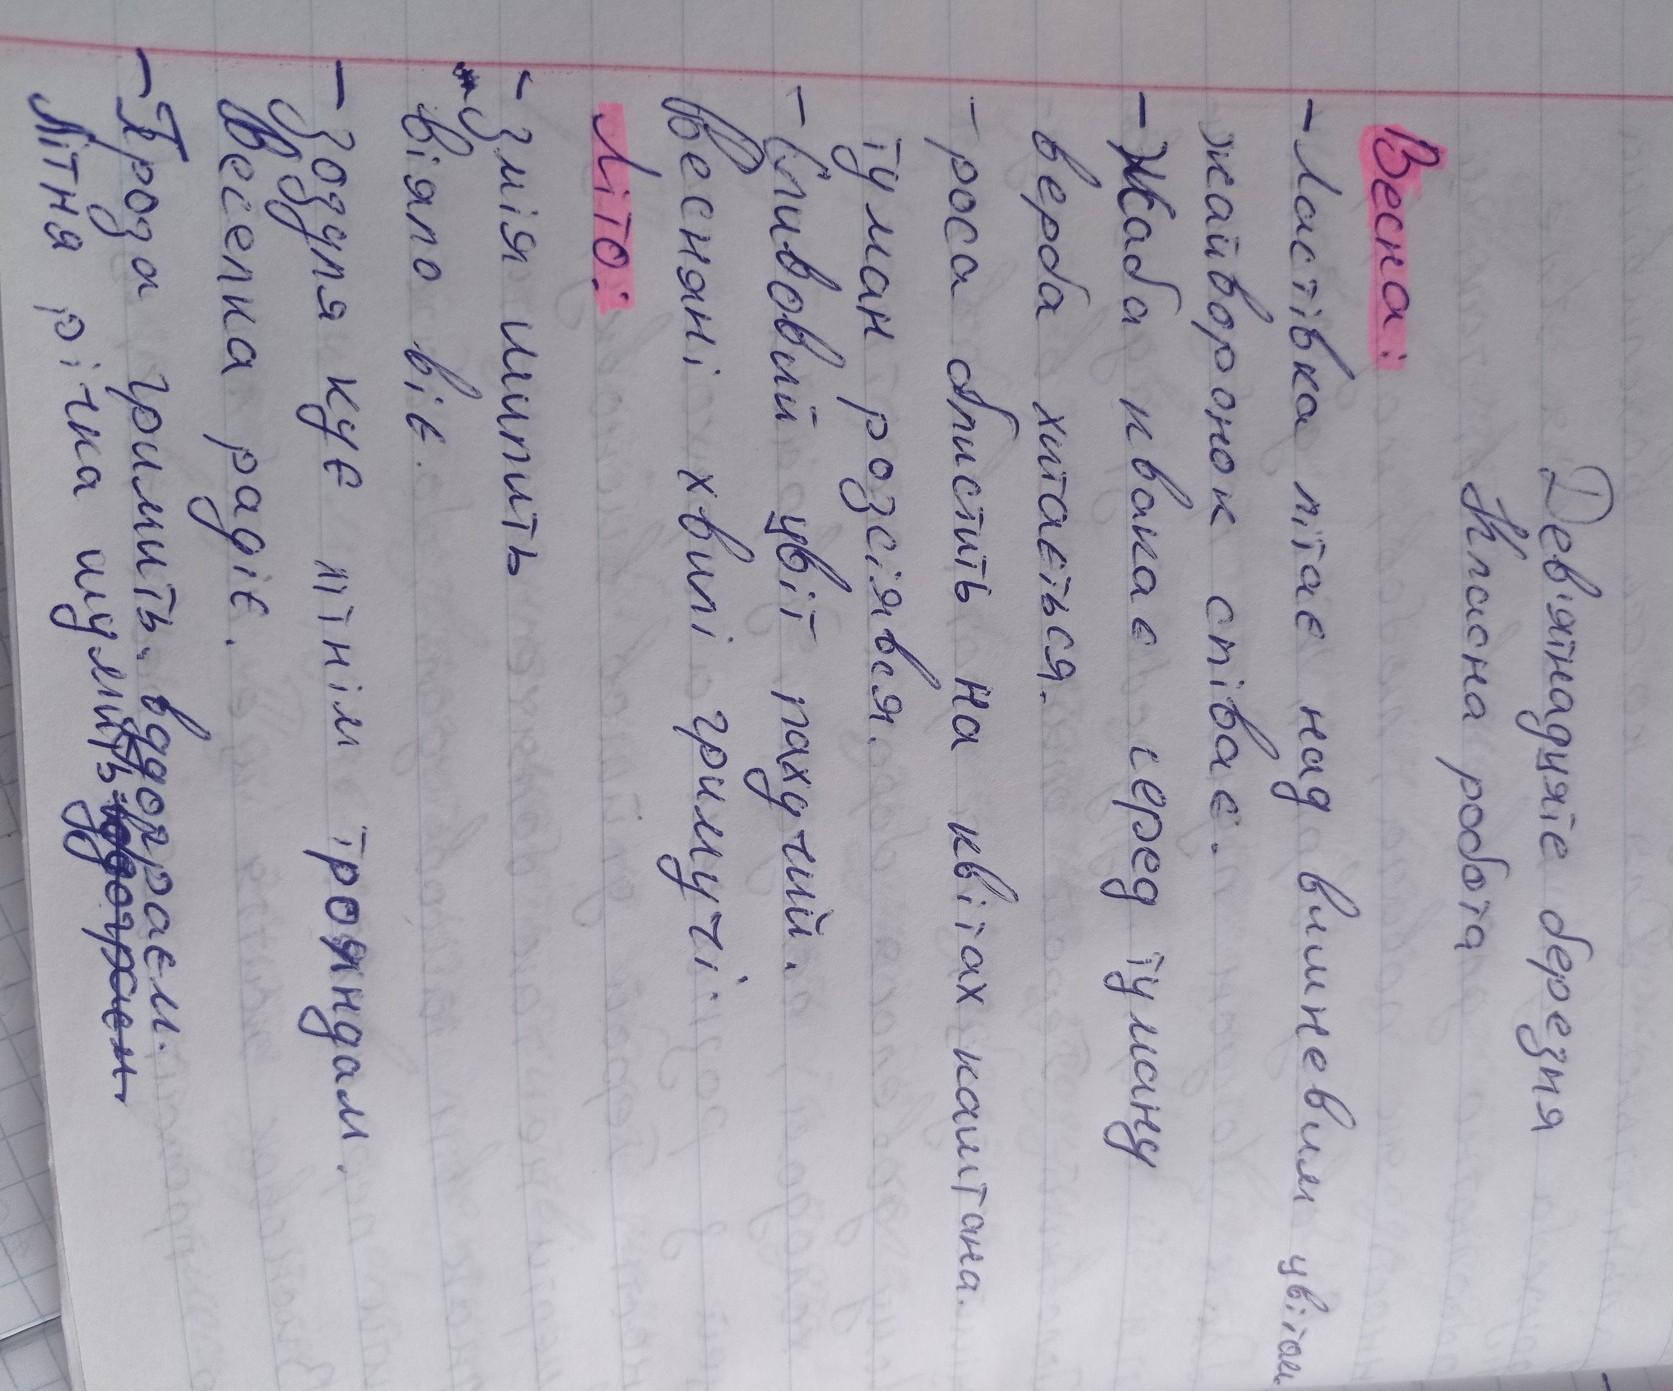 Дев'ятнадцяте березня
Класна робота
Весна:
- Ластівка літає над вишневим цвітом
жайворонок співає.
- Жаба квакає серед туману
верба хитається.
- роса блистить на квітах каштана.
туман розсіявся.
- Сливовий цвіт пахучий.
Весняні хвилі гримучі.
Літо:
- змія шипить
віяло віє.
- Зозуля кує літнім трояндам.
Веселка радіє.
- Гроза гримить. вддограєм.
Літня річка шумить